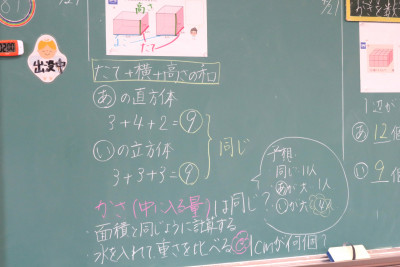 高さ
たて
たて+横+高さの和
あの直方体
3+4+2=9
いの立方体
3+3+3=9
同じ
予想
同じ 1人
あが大 1人
いが大
かさ(中に入る量)は同じ?
・面積と同じように計算する
・水を入れて重さを比べる
1cmが何個?
出没中
1辺が
あ 12個
い 9個